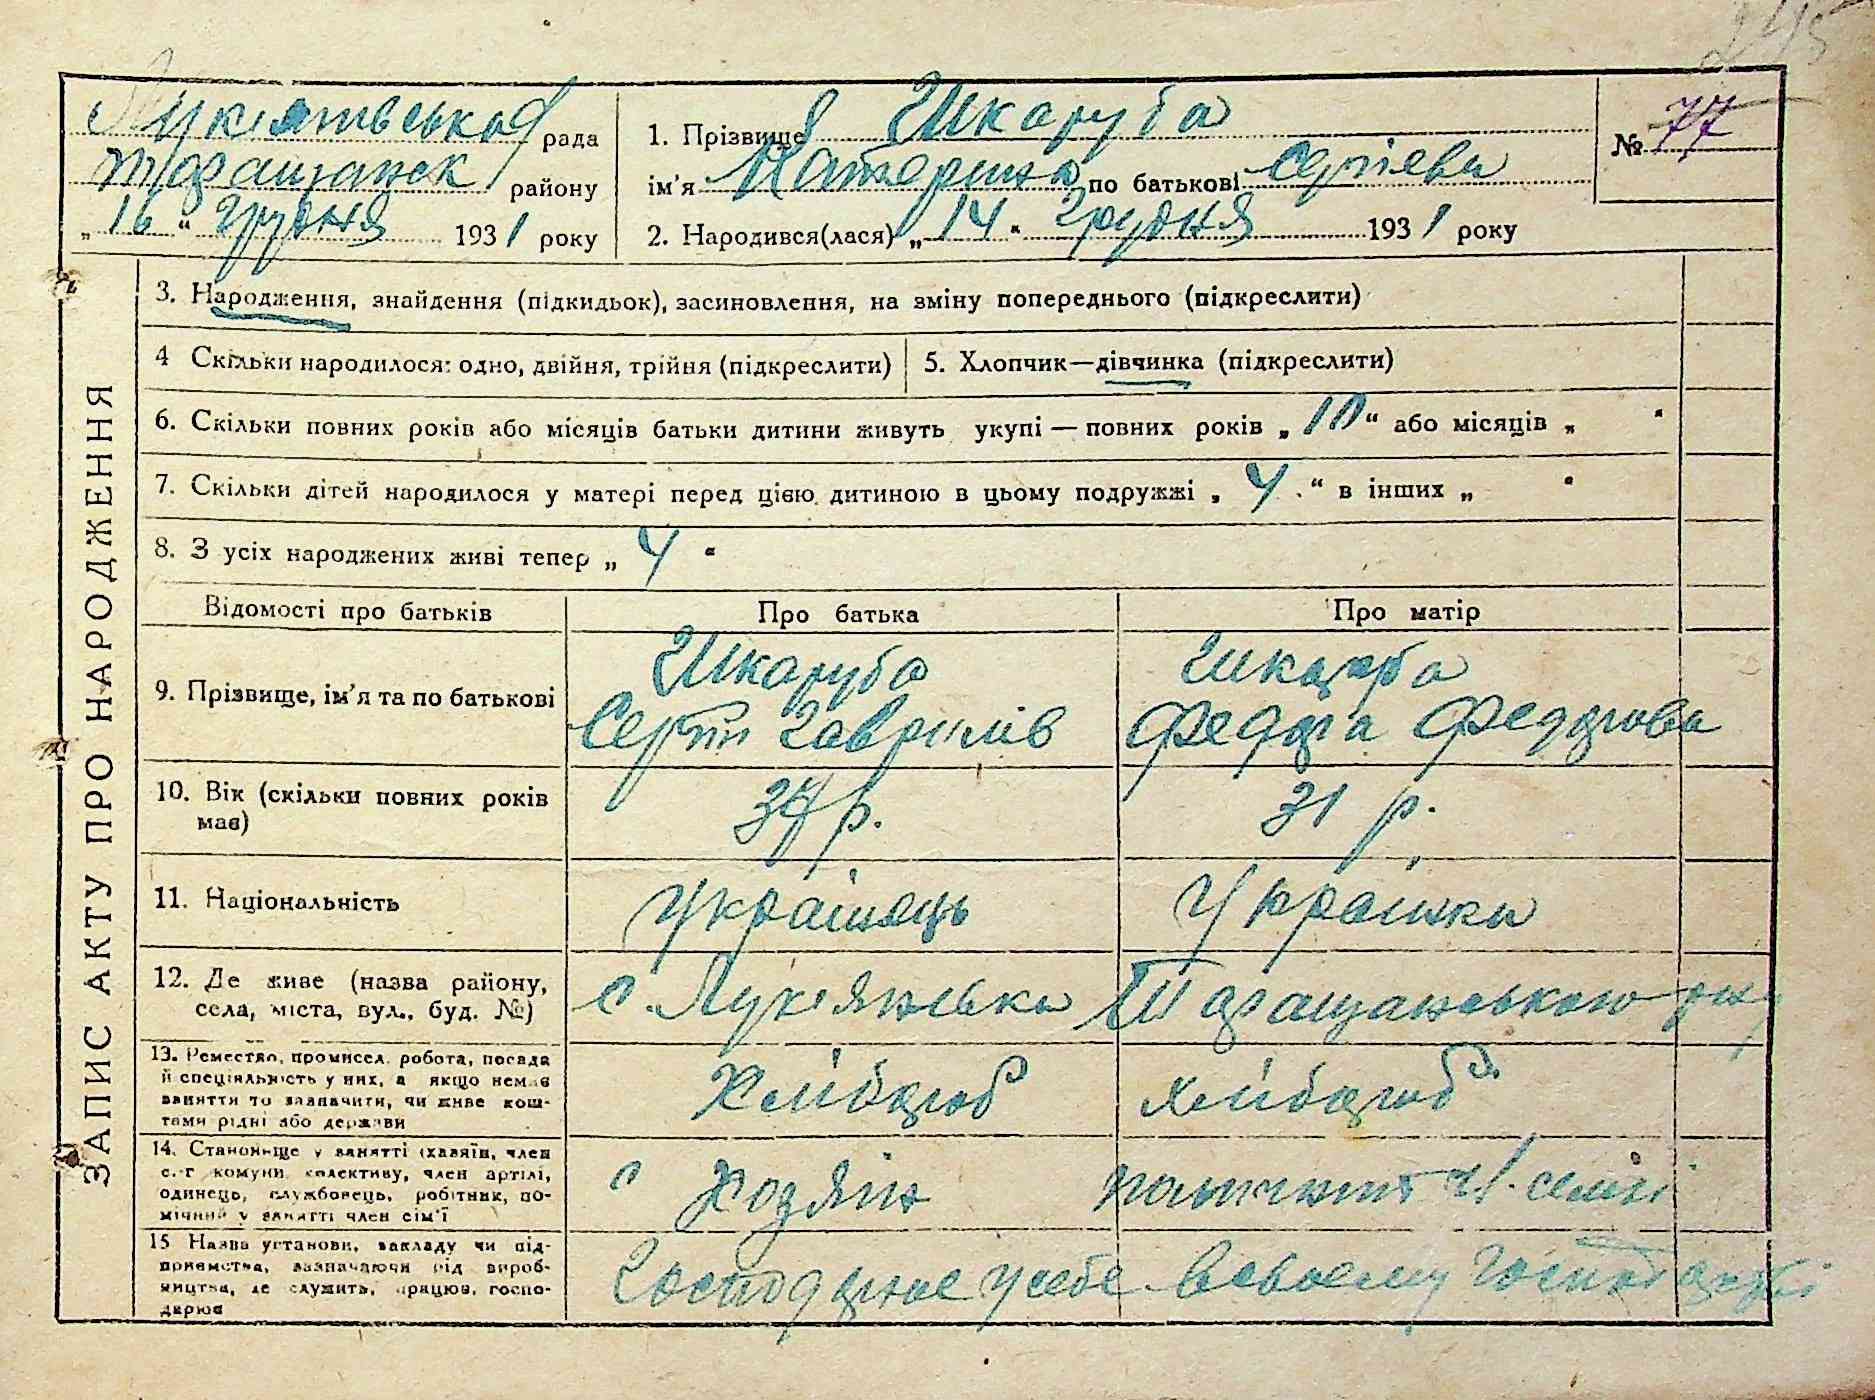 245
Лукіянівська рада
Таращанськ району
„16“ Грудня 1931 року
1. Прізвище Шкаруба
ім'я Катерина по батькові Сергієва
2. Народився(лася) „14“ Грудня 1931 року
№ 77
ЗАПИС АКТУ ПРО НАРОДЖЕННЯ
3. Народження, знайдення (підкидьок), засиновлення, на зміну попереднього (підкреслити)
4 Скільки народилося: одно, двійня, трійня (підкреслити)
5. Хлопчик—дівчинка (підкреслити)
6. Скільки повних років або місяців батьки дитини живуть укупі — повних років „10“ або місяців „ “
7. Скільки дітей народилося у матері перед цією дитиною в цьому подружжі „4“ в інших „ “
8. З усіх народжених живі тепер „4“
Відомості про батьків
Про батька
Про матір
9. Прізвище, ім'я та по батькові
Шкаруба
Сергій Гаврилів
Шкаруба
Федора Федорова
10. Вік (скільки повних років
має)
р.
31 р.
11. Національність
Українець
Українка
12. Де живе (назва району,
села, міста, вул., буд. №)
с. Лукіянівка Таращанського р-ну
13. Реместло, промисел, робота, посада
й спеціяльність у них, а якщо немає
заняття то зазначити, чи живе кош-
тами рідні або держави
Хлібороб
хлібороб
14. Становище у занятті (хазяїн, член
с.-г комуни, колективу, член артілі,
одинець, службовець, робітник, по-
мічний у занятті член сім'ї
Хозяїн
15 Назва установи, закладу чи під-
приємства, зазначаючи рід вироб-
ництва, де служить, працює, госпо-
дарює
Господарює у себе в своєму господарстві